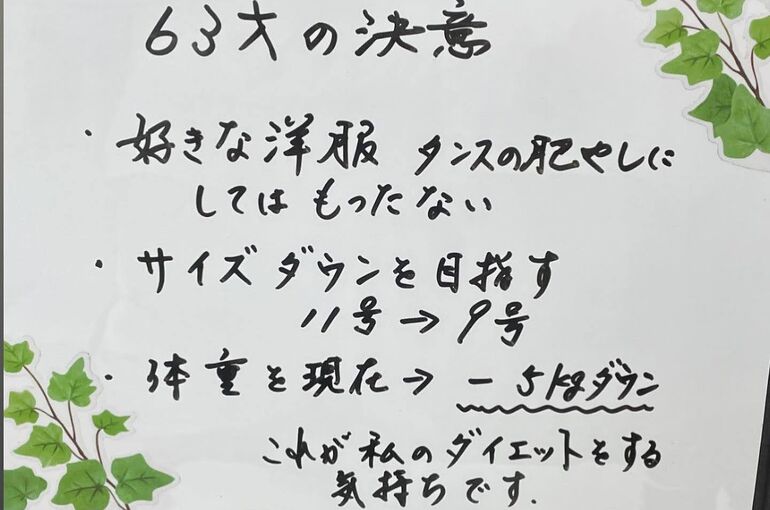 63才の決意
・好きな洋服 タンスの肥やしに
してはもったない
・サイズダウンを目指す
11号→9号
・体重を現在→ －5kgダウン
これが私のダイエットをする
気持ちです.